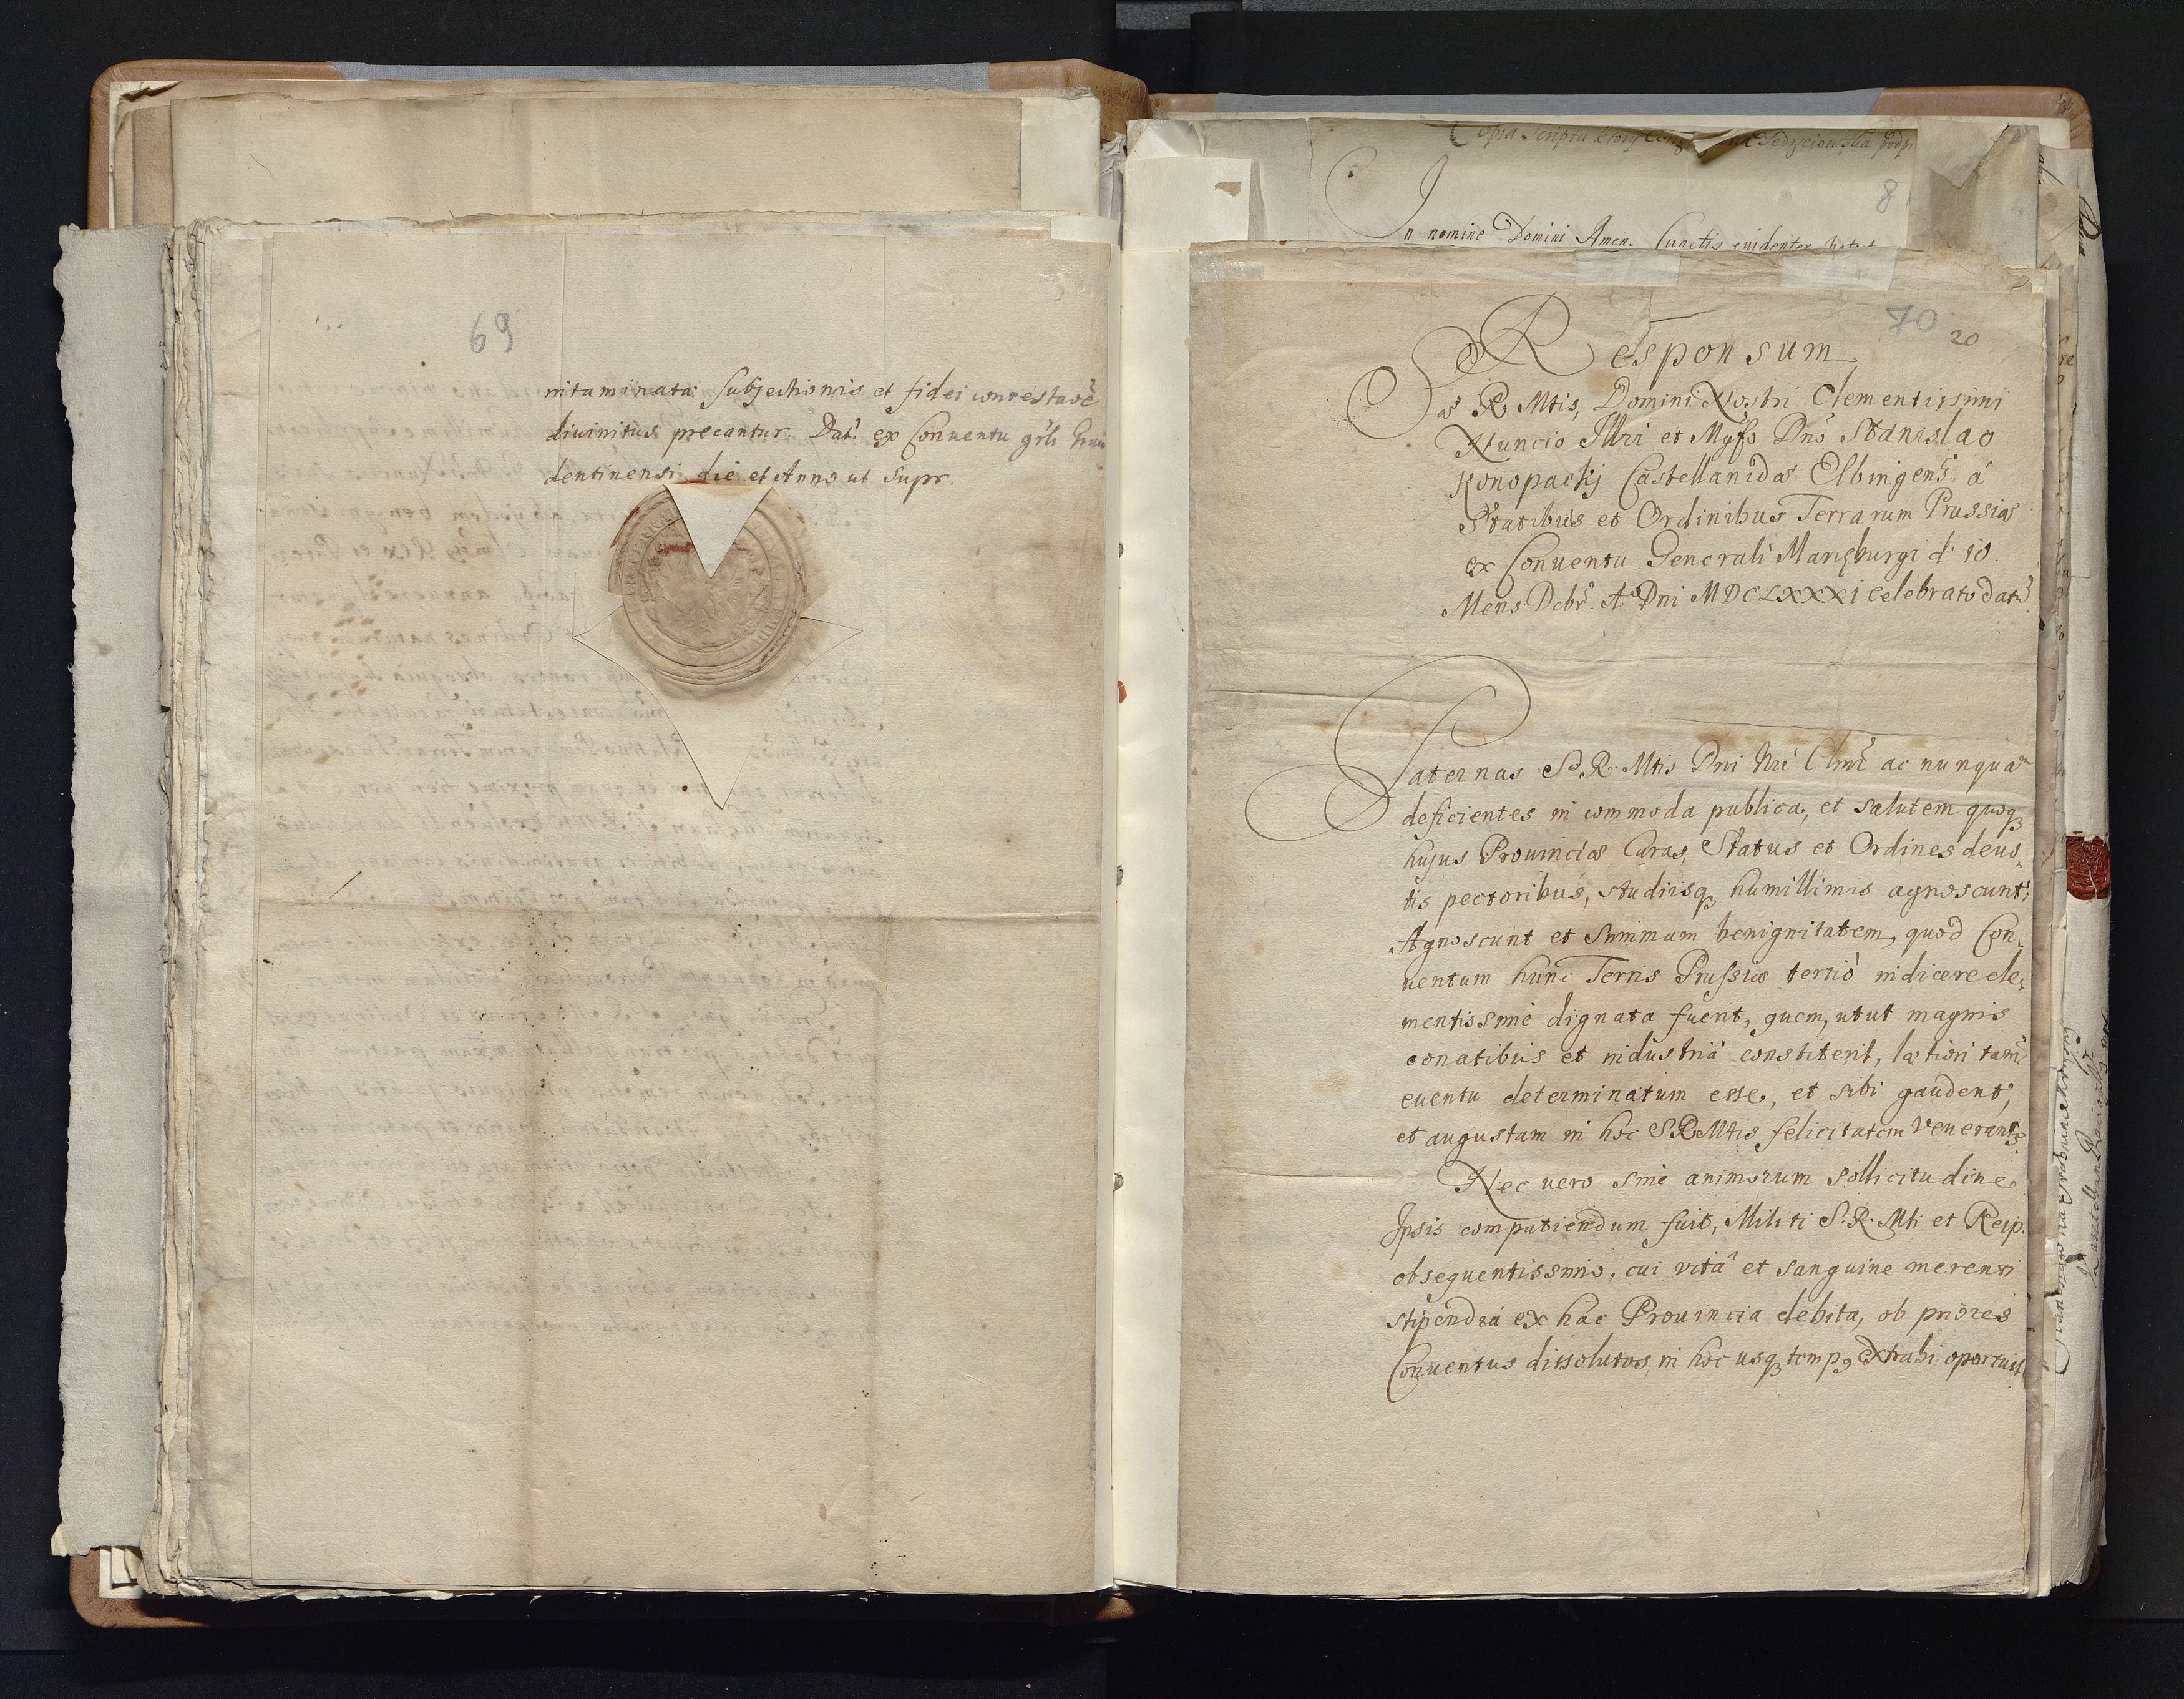 69
nitaminata Subjectionis et fidei contestatõe
divinitus precantur. Dat. ex Conventu grli Grau
dentinensi die et Anno ut Supr.
Copia Scriptu ktory
8
In nomine Domini Amen. Cunctis evidenter
70
20
Responsum
Sæ R Mtis, Domini Nostri Clementissimi
Nuncio Illri et Mgfo Dno Stanislao
Konopackj Castellanidæ Elbingens. á
Statibus et Ordinibus Terrarum Prussiæ
ex Conventu Generali Mariæburgi d. 10.
Mens Dcbr. Ao Dni MDCLXXXI celebrato datũ
Paternas Sæ R. Mtis Dni Nri Clmi ac nunquã
deficientes in commoda publica, et salutem quoqꝫ
hujus Provinciæ Curas, Status et Ordines devo,
tis pectoribus, studiisqꝫ humillimis agnoscunt:
Agnoscunt et Summam benignitatem, quod Con,
ventum hunc Terris Prussiæ tertiò indicere cle,
mentissimè dignata fuerit, quem, utut magnis
conatibus et industriâ constiterit, lætiori tamẽ
eventu determinatum esse, et sibi gaudent,
et augustam in hoc SRMtis felicitatem venerantꝫ
Nec vero sine animorum sollicitudine
Ipsis compatiendum fuit, Militi S. R. Mti et Reip.
obsequentissimo, cui vitâ et sanguine merenti
stipendia ex hac Provincia debita, ob priores
Conventus dissolutos, in hoc usqꝫ tempꝯ extrahi oportuit